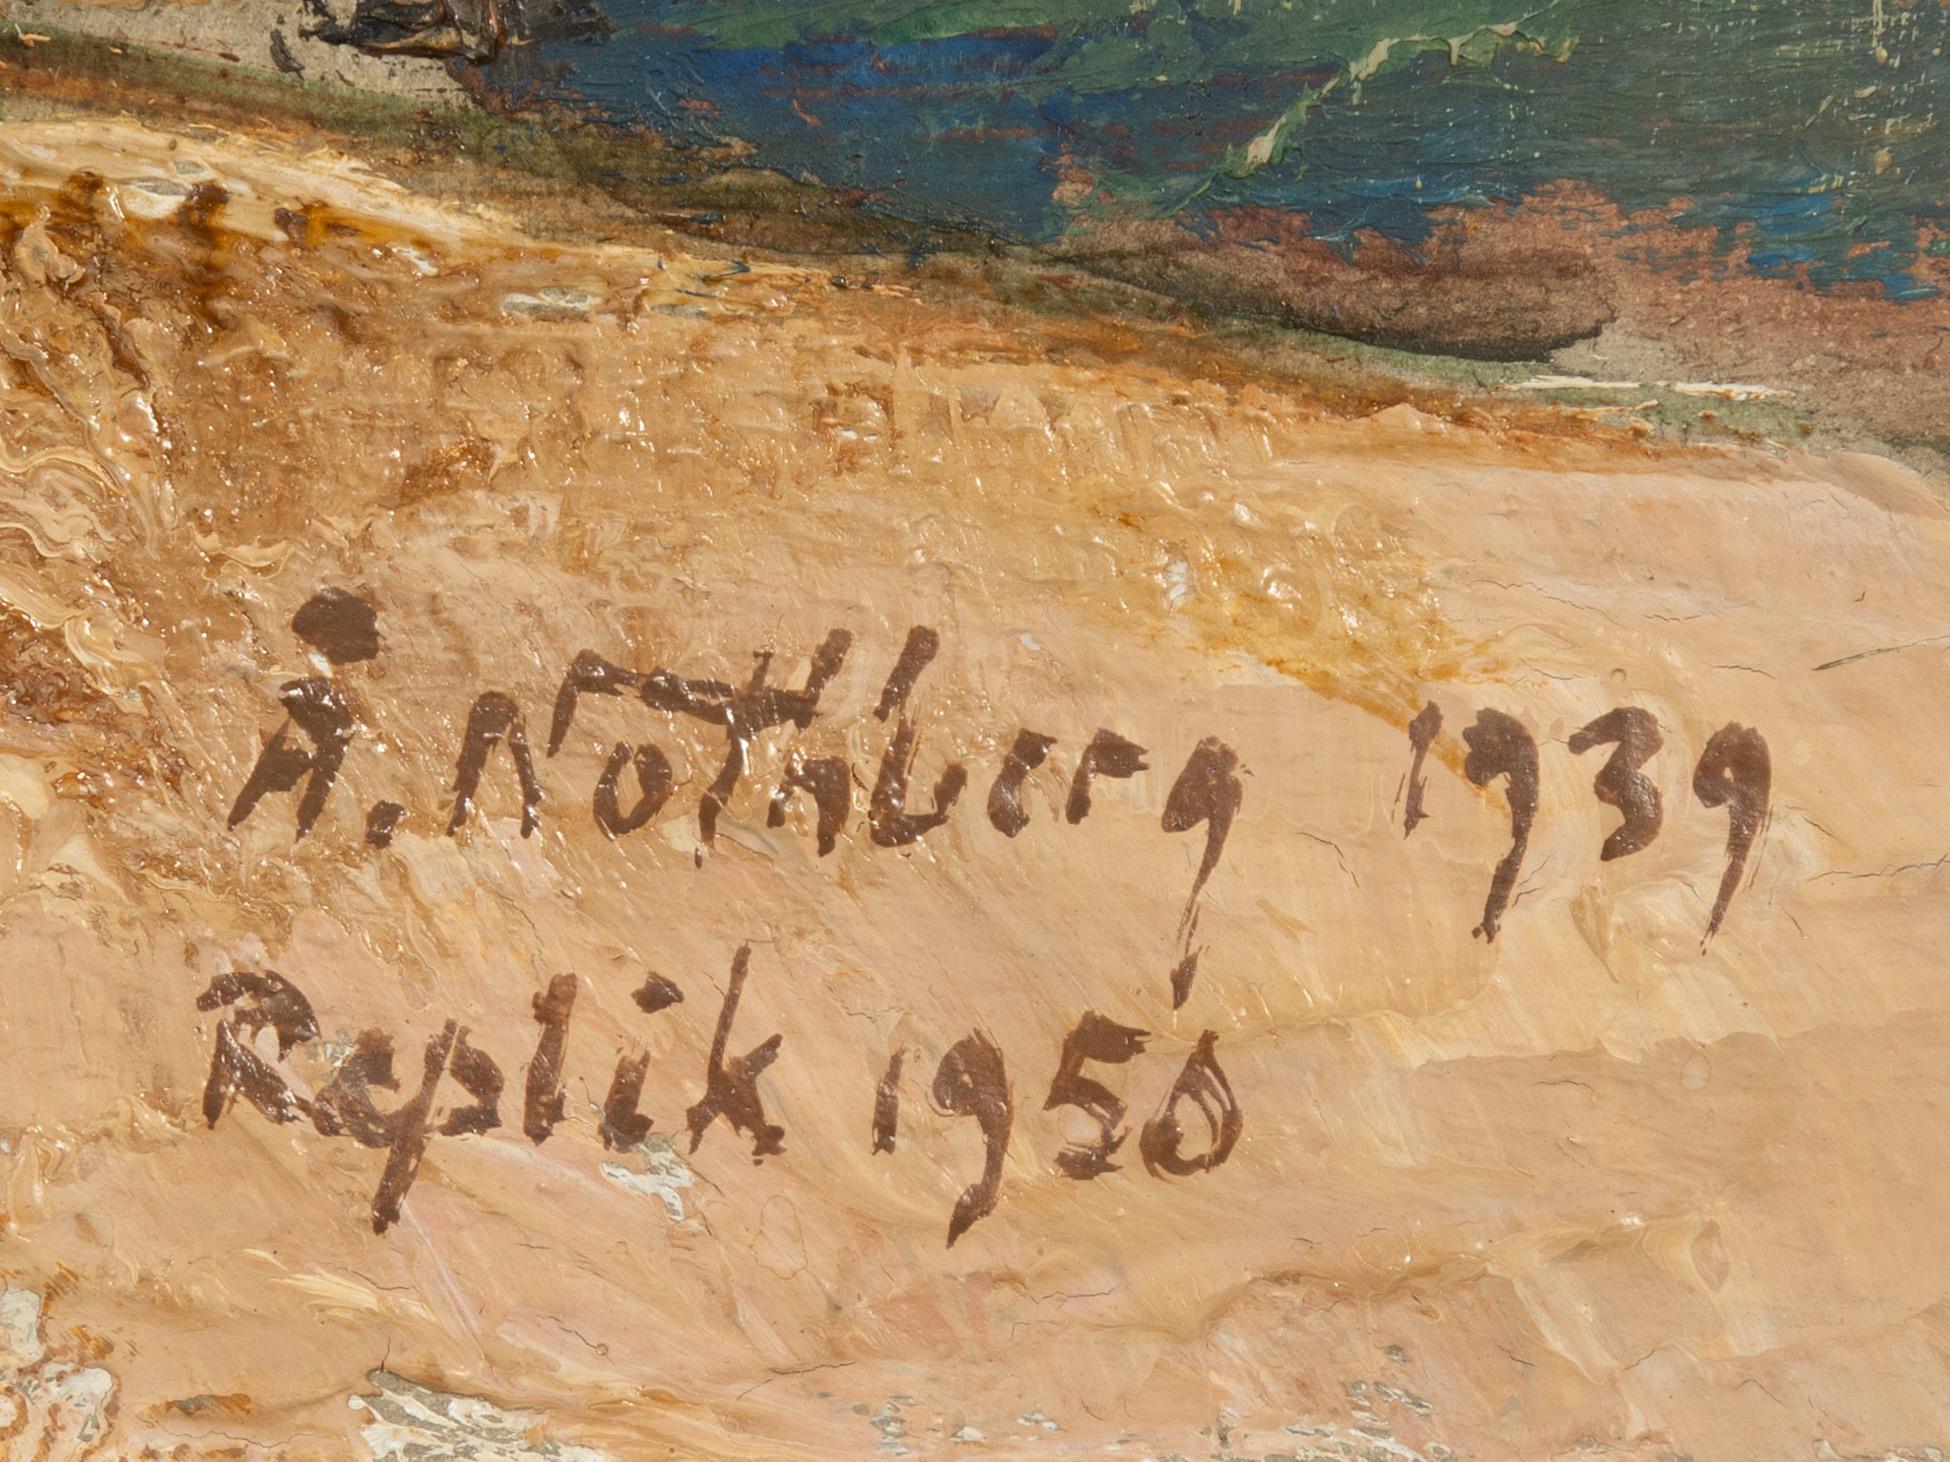 Å. Nothberg 1939
Replik 1950